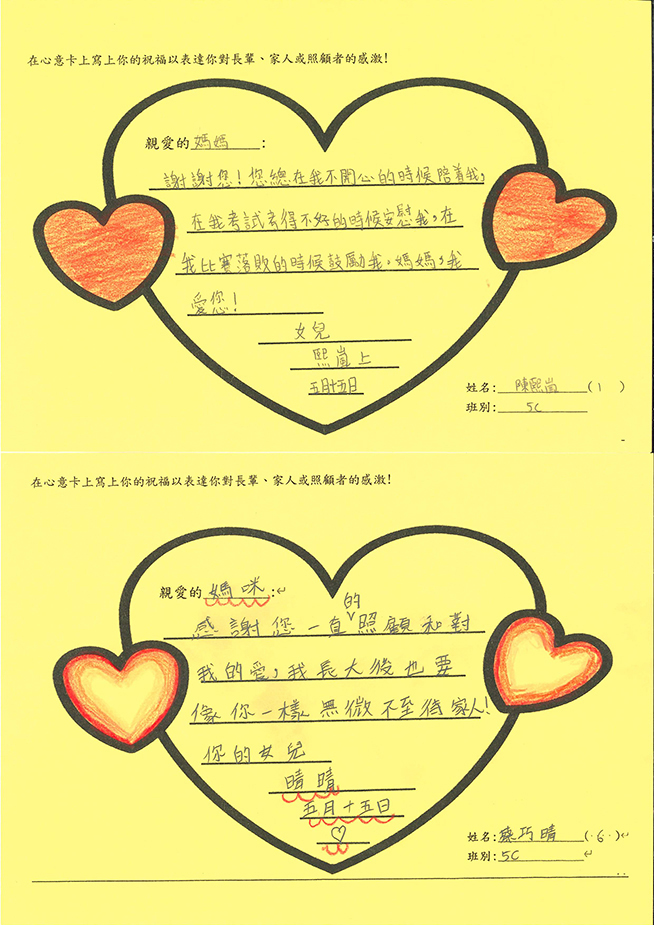 在心意卡上寫上你的祝福以表達你對長輩、家人或照顧者的感激!
親愛的媽媽:
謝謝您!您總在我不開心的時候陪着我,
在我考試考得不好的時候安慰我,在
我比賽落敗的時候鼓勵我。媽媽,我
愛您!
女兒
熙嵐上
五月十五日
姓名:陳熙嵐(1)
班別:5C
在心意卡上寫上你的祝福以表達你對長輩、家人或照顧者的感激!
親愛的媽咪:
感謝您一直的照顧和對
我的愛,我長大後也要
像你一樣無微不至待家人!
你的女兒
晴晴
五月十五日
♡
姓名:蔡巧晴(6)
班別:5C